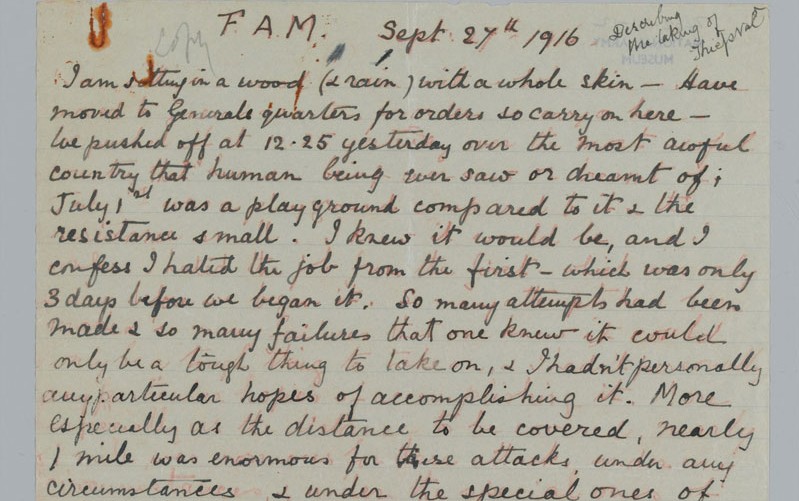 copy
F A M. Sept 27th 1916
Describing
the taking of
Thiepval
MUSEUM
I am sitting in a wood (& rain) with a whole skin — Have
moved to Generals quarters for orders so carry on here —
We pushed off at 12.25 yesterday over the most awful
country that human being ever saw or dreamt of;
July 1st was a playground compared to it & the
resistance small. I knew it would be, and I
confess I hated the job from the first — which was only
3 days before we began it. So many attempts had been
made & so many failures that one knew it could
only be a tough thing to take on, & I hadn't personally
any particular hopes of accomplishing it. More
especially as the distance to be covered, nearly
1 mile was enormous for these attacks under any
circumstances & under the special ones of